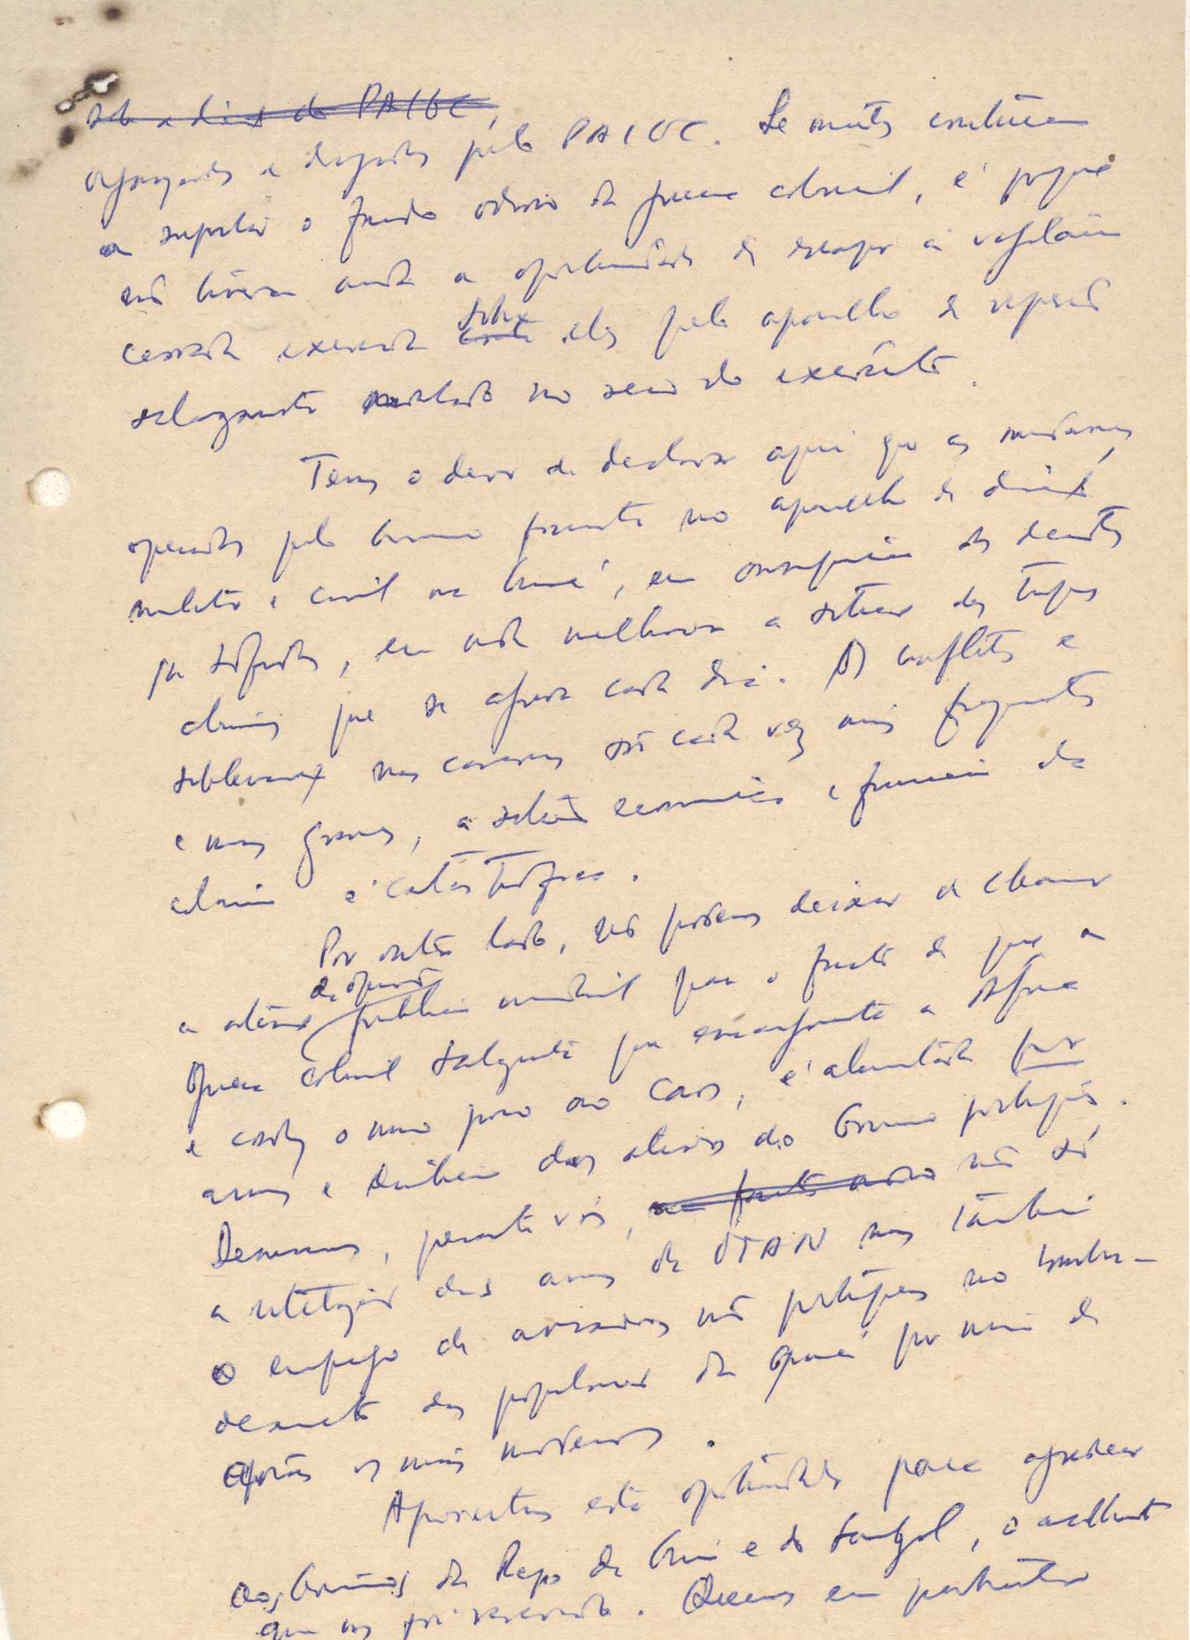 sob a direcção do PAIGC,
organizados e dirigidos pelo PAIGC. Se muitos continuam
a suportar o fardo odioso da guerra colonial, é porque
não tiveram ainda a oportunidade de escapar à vigilância
cerrada exercida sobre eles pelo aparelho de repressão
salazarista instalado no seio do exército.
Temos o dever de declarar aqui que as mudanças
operadas pelo Governo fascista no aparelho de direcção
militar e civil na Guiné, em consequência das derrotas
já sofridas, em nada melhoram a situação das tropas
coloniais que se agrava cada dia. Os conflitos e
sublevações nas casernas são cada vez mais frequentes
e mais graves, a situação económica e financeira da
colónia é catastrófica.
Por outro lado, não podemos deixar de chamar
a atenção da opinião pública mundial para o facto de que a
guerra colonial salazarista que ensanguenta a África
e conduz o nosso povo ao caos, é alimentada por
armas e dinheiro dos aliados do Governo português.
Denunciamos, perante vós, não só
a utilização das armas da OTAN mas também
o emprego de aviadores não portugueses no bombar-
deamento das populações da Guiné por meio de
aviões os mais modernos.
Aproveitamos esta oportunidade para agradecer
aos Governos da Rep. da Guiné e do Senegal, o acolhimento
que nos foi reservado. Queremos em particular